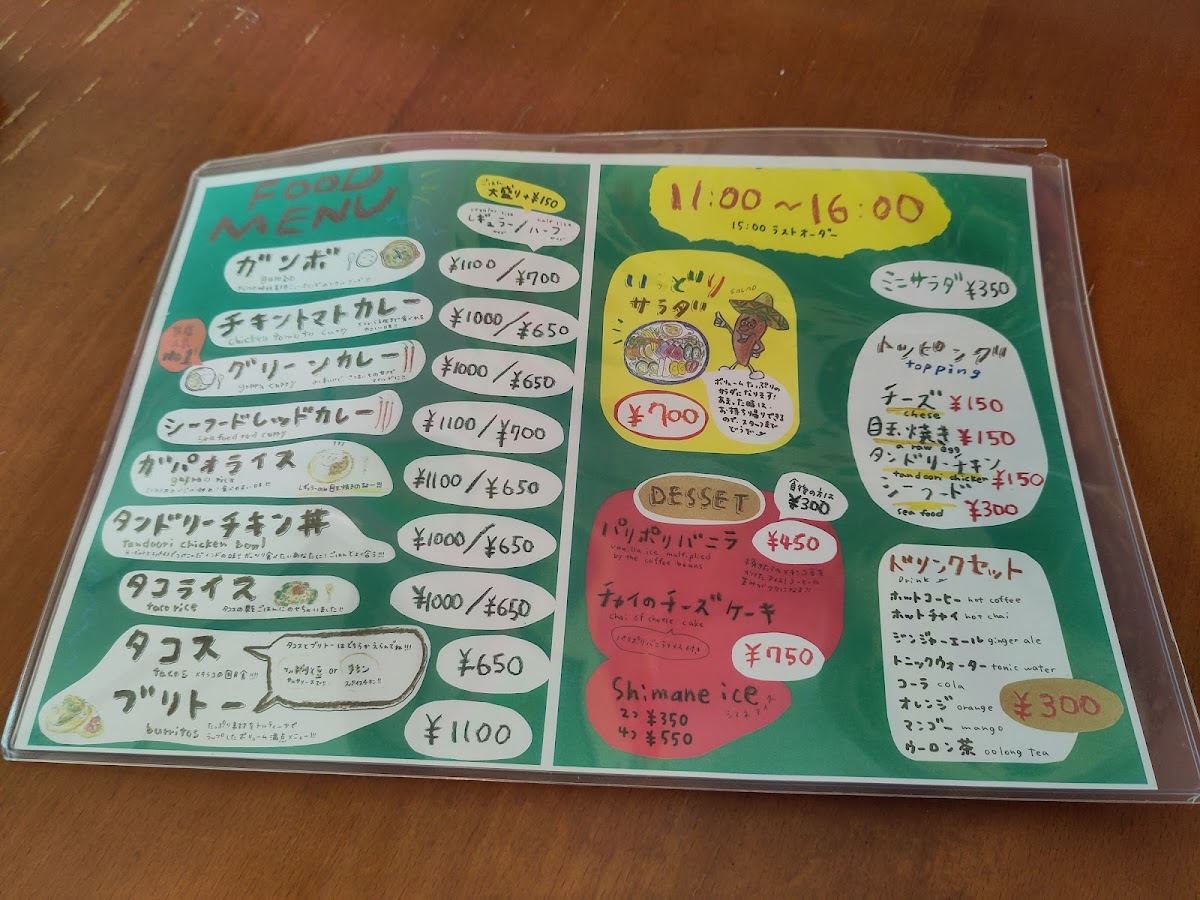 FOOD
MENU
ごはん
大盛り+¥150
レギュラー/ハーフ
ガンボ
gumbo
¥1100/¥700
チキントマトカレー
chicken tomato curry
¥1000/¥650
No.1
グリーンカレー
green curry
¥1000/¥650
シーフードレッドカレー
sea food red curry
¥1100/¥700
ガパオライス
gapao rice
¥1100/¥650
タンドリーチキン丼
tandoori chicken bowl
¥1000/¥650
タコライス
taco rice
タコスの具をごはんにのせちゃいました!!
¥1000/¥650
タコス
tacos メキシコの国民食!!!
¥650
タコスとブリトーはどちらかえらんでね!!!
or チキン
ブリトー
burritos
たっぷり具材をトルティーヤで
ラップしたボリューム満点メニュー!!
¥1100
11:00~16:00
15:00 ラストオーダー
いろどり
サラダ
SALAD
ボリュームたっぷりの
サラダになります!
あまった時は、
お持ち帰りできる
ので、スタッフまで
どうぞ
¥700
ミニサラダ ¥350
トッピング
topping
チーズ ¥150
chese
目玉焼き ¥150
a raw egg
タンドリーチキン
tandoori chicken ¥150
シーフード
sea food ¥300
DESSET
食後の方は
¥300
パリポリバニラ
¥450
vanilla ice multiplied
by the coffee beans
チャイのチーズケーキ
chai of cheese cake
パリポリバニラアイス付き
¥750
Shimane ice
シマネアイス
2つ ¥350
4つ ¥550
ドリンクセット
Drink
ホットコーヒー hot coffee
ホットチャイ hot chai
ジンジャーエール ginger ale
トニックウォーター tonic water
コーラ cola
オレンジ orange
マンゴー mango
ウーロン茶 oolong tea
¥300